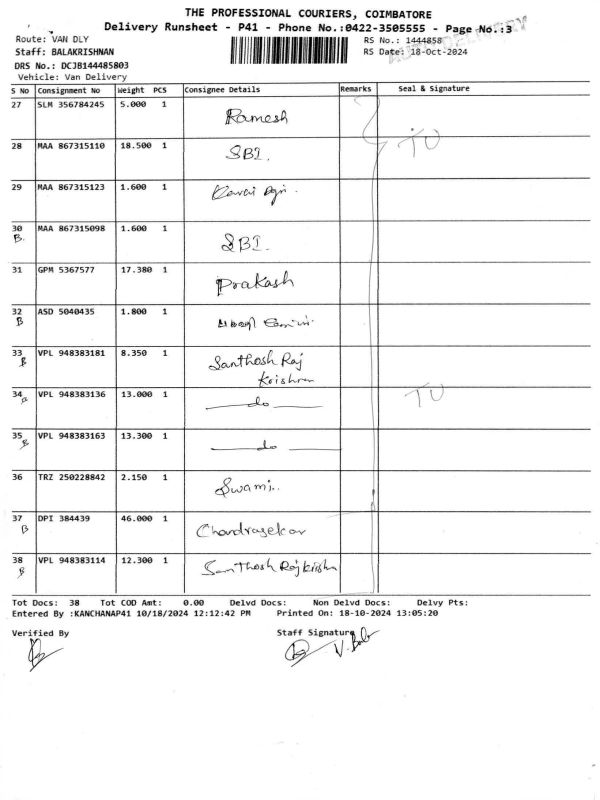 THE PROFESSIONAL COURIERS, COIMBATORE
Delivery Runsheet - P41 - Phone No.:0422-3505555 - Page No.:3
Route: VAN DLY RS No.: 1444858
Staff: BALAKRISHNAN RS Date: 18-Oct-2024
DRS No.: DCJB144485803
Vehicle: Van Delivery
S No Consignment No Weight PCS Consignee Details Remarks Seal & Signature
27 SLM 356784245 5.000 1 Ramesh
28 MAA 867315110 18.500 1 SBI. TO
29 MAA 867315123 1.600 1
30 MAA 867315098 1.600 1 SBI.
B.
31 GPM 5367577 17.380 1 Prakash
32 ASD 5040435 1.800 1
B
33 VPL 948383181 8.350 1 Santhosh Raj
B Krishnan
34 VPL 948383136 13.000 1 do TO
B
35 VPL 948383163 13.300 1 do
B
36 TRZ 250228842 2.150 1 Swami..
37 DPI 384439 46.000 1 Chandrasekar
B
38 VPL 948383114 12.300 1 Santhosh Rajkrishn
B
Tot Docs: 38 Tot COD Amt: 0.00 Delvd Docs: Non Delvd Docs: Delvy Pts:
Entered By :KANCHANAP41 10/18/2024 12:12:42 PM Printed On: 18-10-2024 13:05:20
Verified By Staff Signature